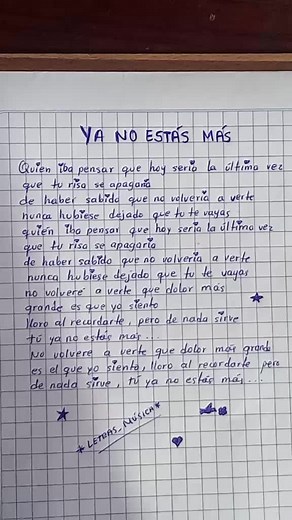 YA NO ESTÁS MÁS
Quien iba pensar que hoy seria la última vez
que tu risa se apagaria
de haber sabido que no volveria a verte
nunca hubiese dejado que tu te vayas
quien iba pensar que hoy seria la última vez
que tu risa se apagaria
de haber sabido que no volveria a verte
nunca hubiese dejado que tu te vayas
no volveré a verte que dolor más
grande es que yo siento
lloro al recordarte, pero de nada sirve
tú ya no estás mas...
No volvere a verte que dolor más grande
es el que yo siento, lloro al recordarte pero
de nada sirve, tú ya no estás más...
*LETRAS_MÚSICA*